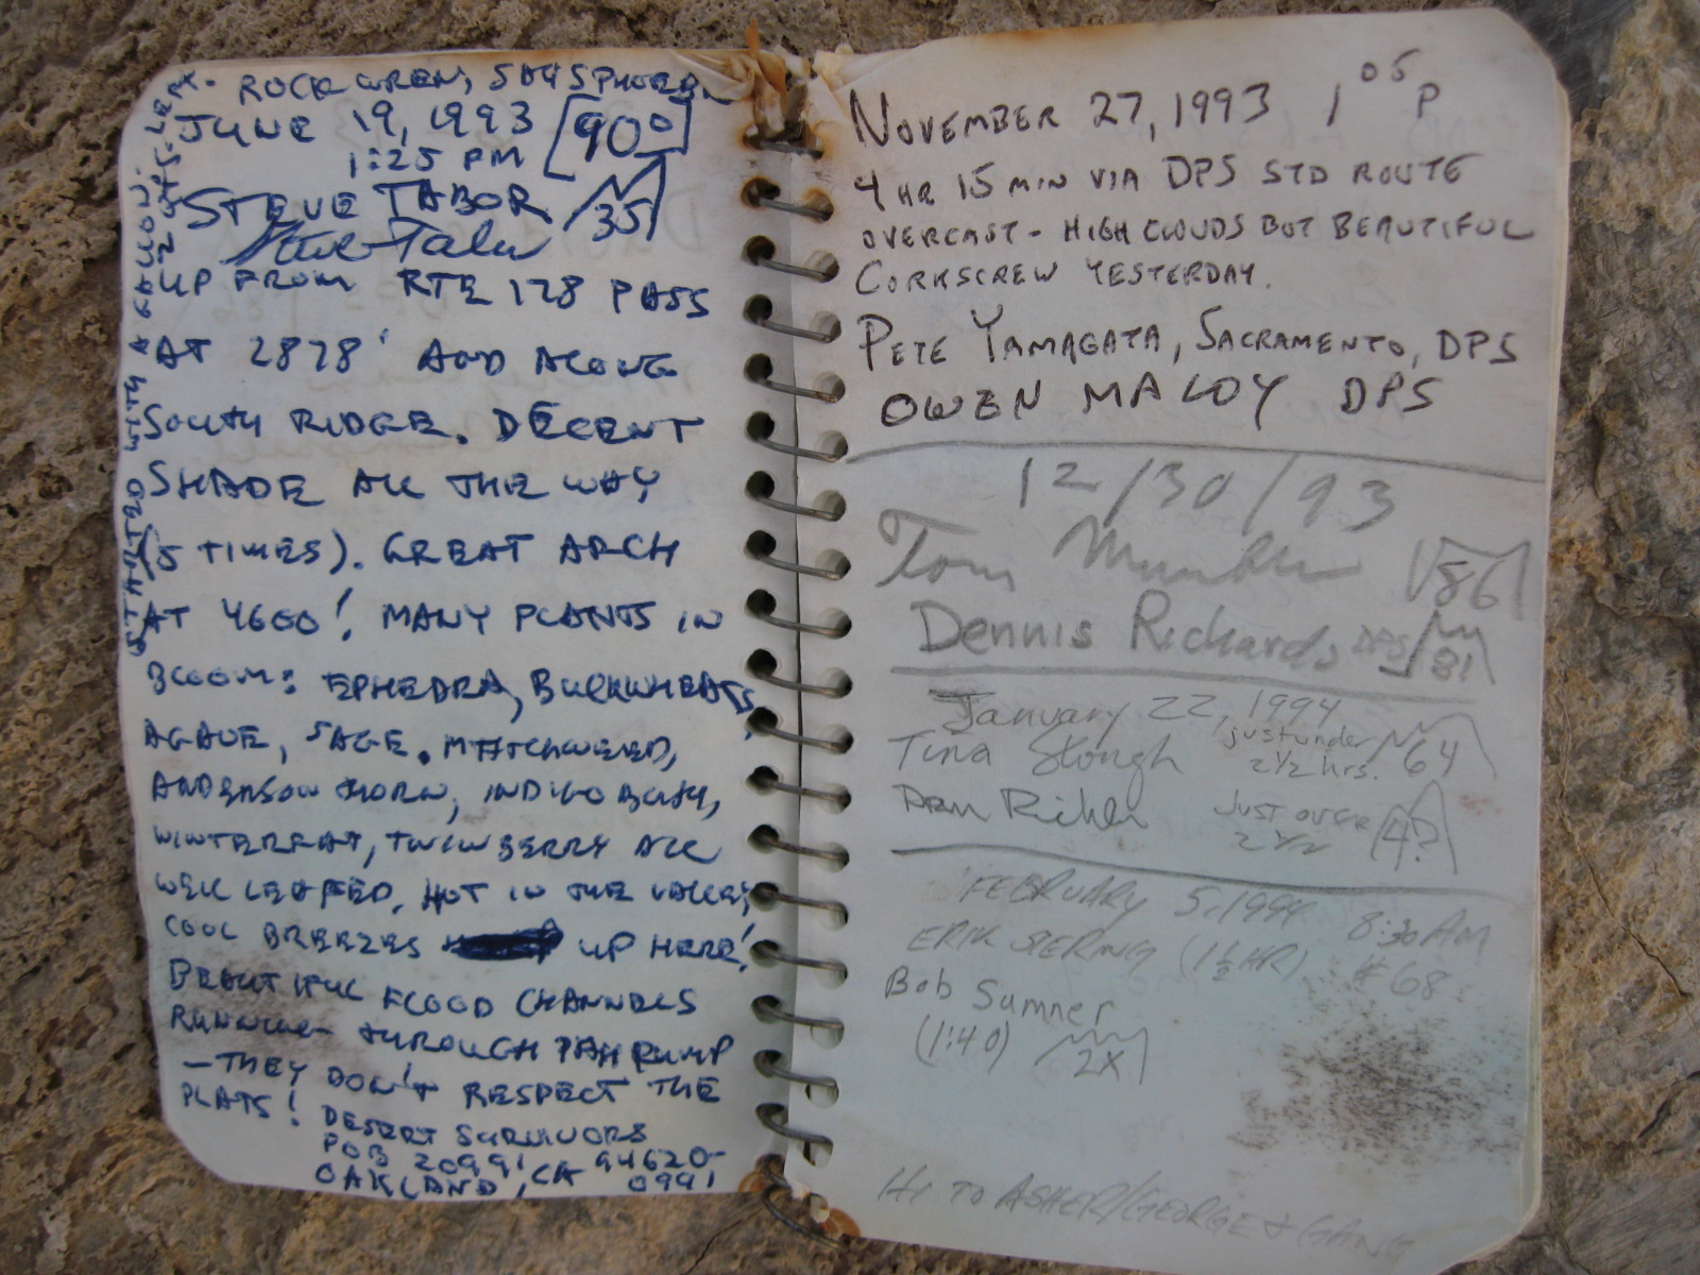 ROCK WREN, SAY'S PHOEBE
JUNE 19, 1993 [90°]
1:25 PM
STEVE TABOR 35
Steve Tabor
UP FROM RTE 178 PASS
AT 2878' AND ALONG
SOUTH RIDGE. DECENT
SHADE ALL THE WAY
(5 TIMES). GREAT ARCH
AT 4600! MANY PLANTS IN
BLOOM: EPHEDRA, BUCKWHEATS,
AGAVE, SAGE. MATCHWEED,
ANDERSON THORN, INDIGO BUSH,
WINTERFAT, TWINBERRY ALL
WELL LEAFED. HOT IN THE VALLEY,
COOL BREEZES UP HERE!
BEAUTIFUL FLOOD CHANNELS
RUNNING THROUGH PAHRUMP
— THEY DON'T RESPECT THE
PLATS!
DESERT SURVIVORS
POB 20991
OAKLAND, CA 94620-
0991
STARTED WITH A GALLON.
2 QTS. LEFT.
NOVEMBER 27, 1993 1 05 P
4 HR 15 MIN VIA DPS STD ROUTE
OVERCAST - HIGH CLOUDS BUT BEAUTIFUL
CORKSCREW YESTERDAY.
PETE YAMAGATA, SACRAMENTO, DPS
OWEN MALOY DPS
12/30/93
Tom 86
Dennis Richards DPS 81
January 22, 1994
Tina Stough just under 2 1/2 hrs. 64
Dan Richter JUST OVER 2 1/2 4?
FEBRUARY 5, 1994 8:30 AM
ERIK SIERING (1 1/2 HR) #68
Bob Sumner
(1:40) 2X
HI TO ASHER/GEORGE & GANG